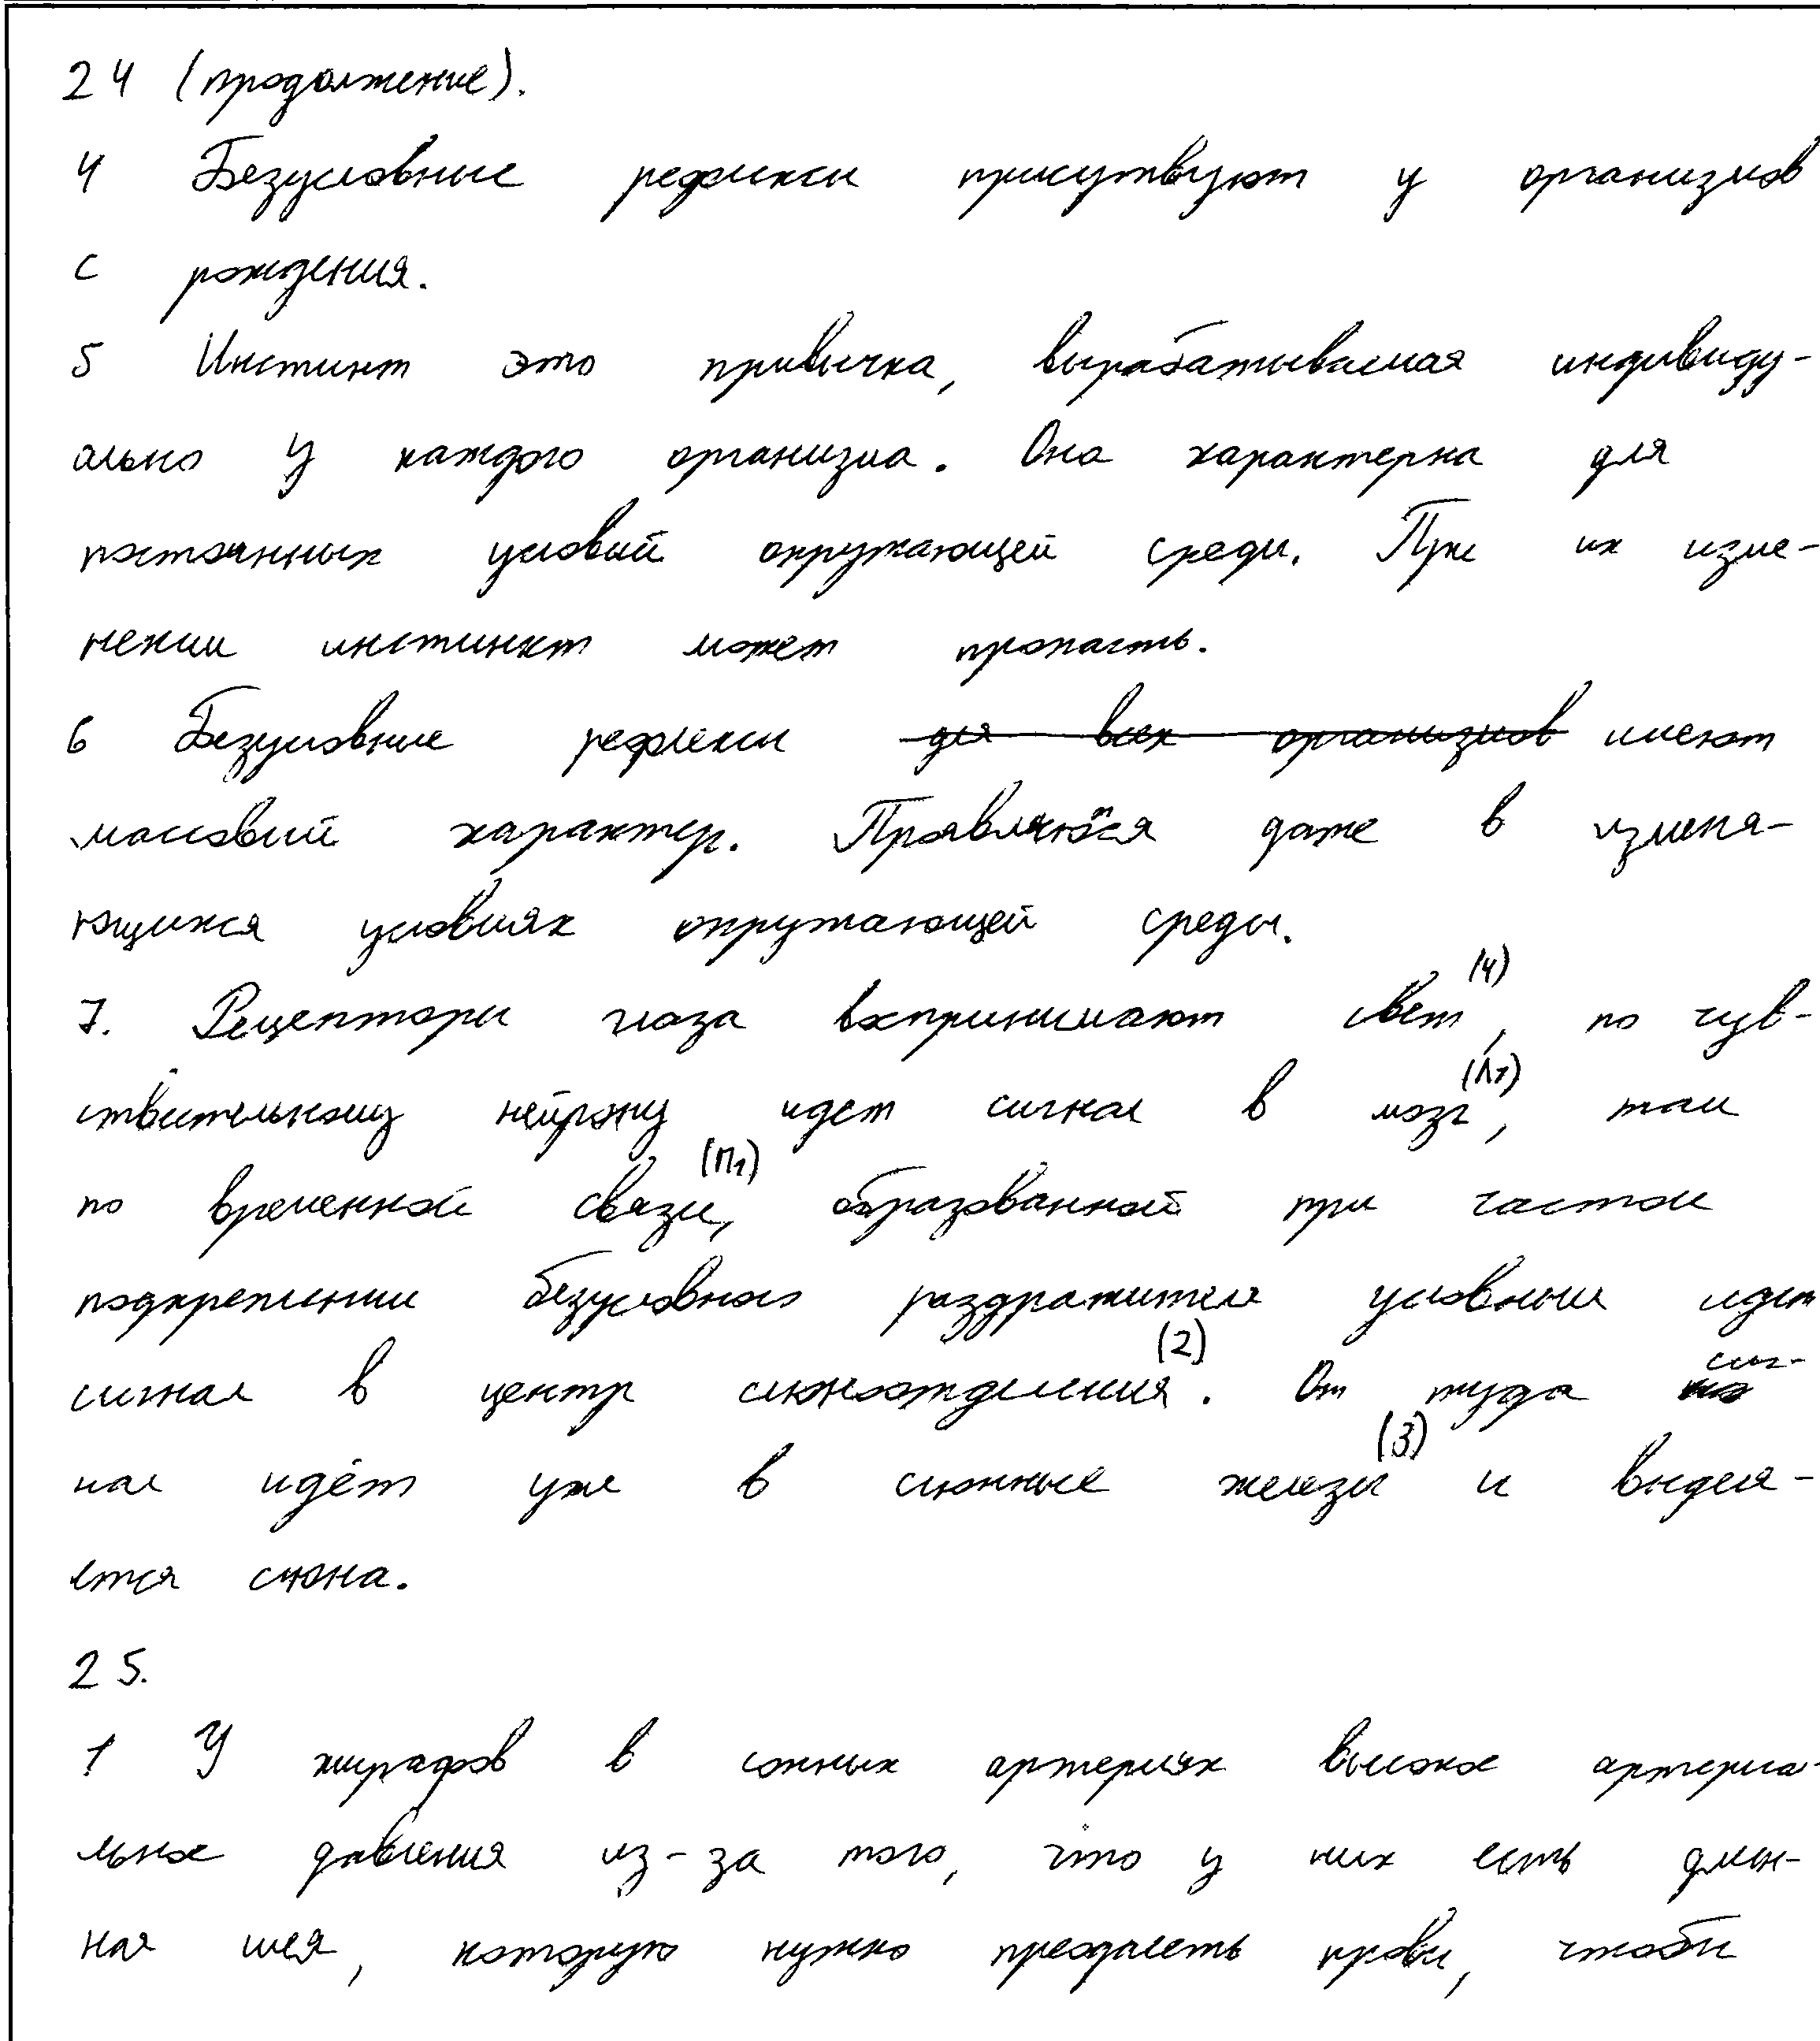 24 (продолжение).
4 Безусловные рефлексы присутвуют у организмов
с рождения.
5 Инстинт это привычка, вырабатываемая индивиду-
ально у каждого организма. Она характерна для
постоянных условий окружающей среды. При их изме-
нении инстинкт может пропасть.
6 Безусловные рефлексы для всех организмов имеют
массовый характер. Проявляются даже в изменя-
ющихся условиях окружающей среды.
7. Рецепторы глаза воспринимают свет (4), по чув-
ствительному нейрону идет сигнал в мозг, там
по временной связи (П1), образованной при частом
подкреплении безусловного раздражителя условным идет
сигнал в центр слюноотделения (2). От туда сиг-
нал идёт уже в слюнные железы (3) и выделя-
ется слюна.
25.
1 У жирафов в сонных артериях высокое артериа-
льное давления из-за того, что у них есть длин-
ная шея, которую нужно преодлеть крови, чтобы